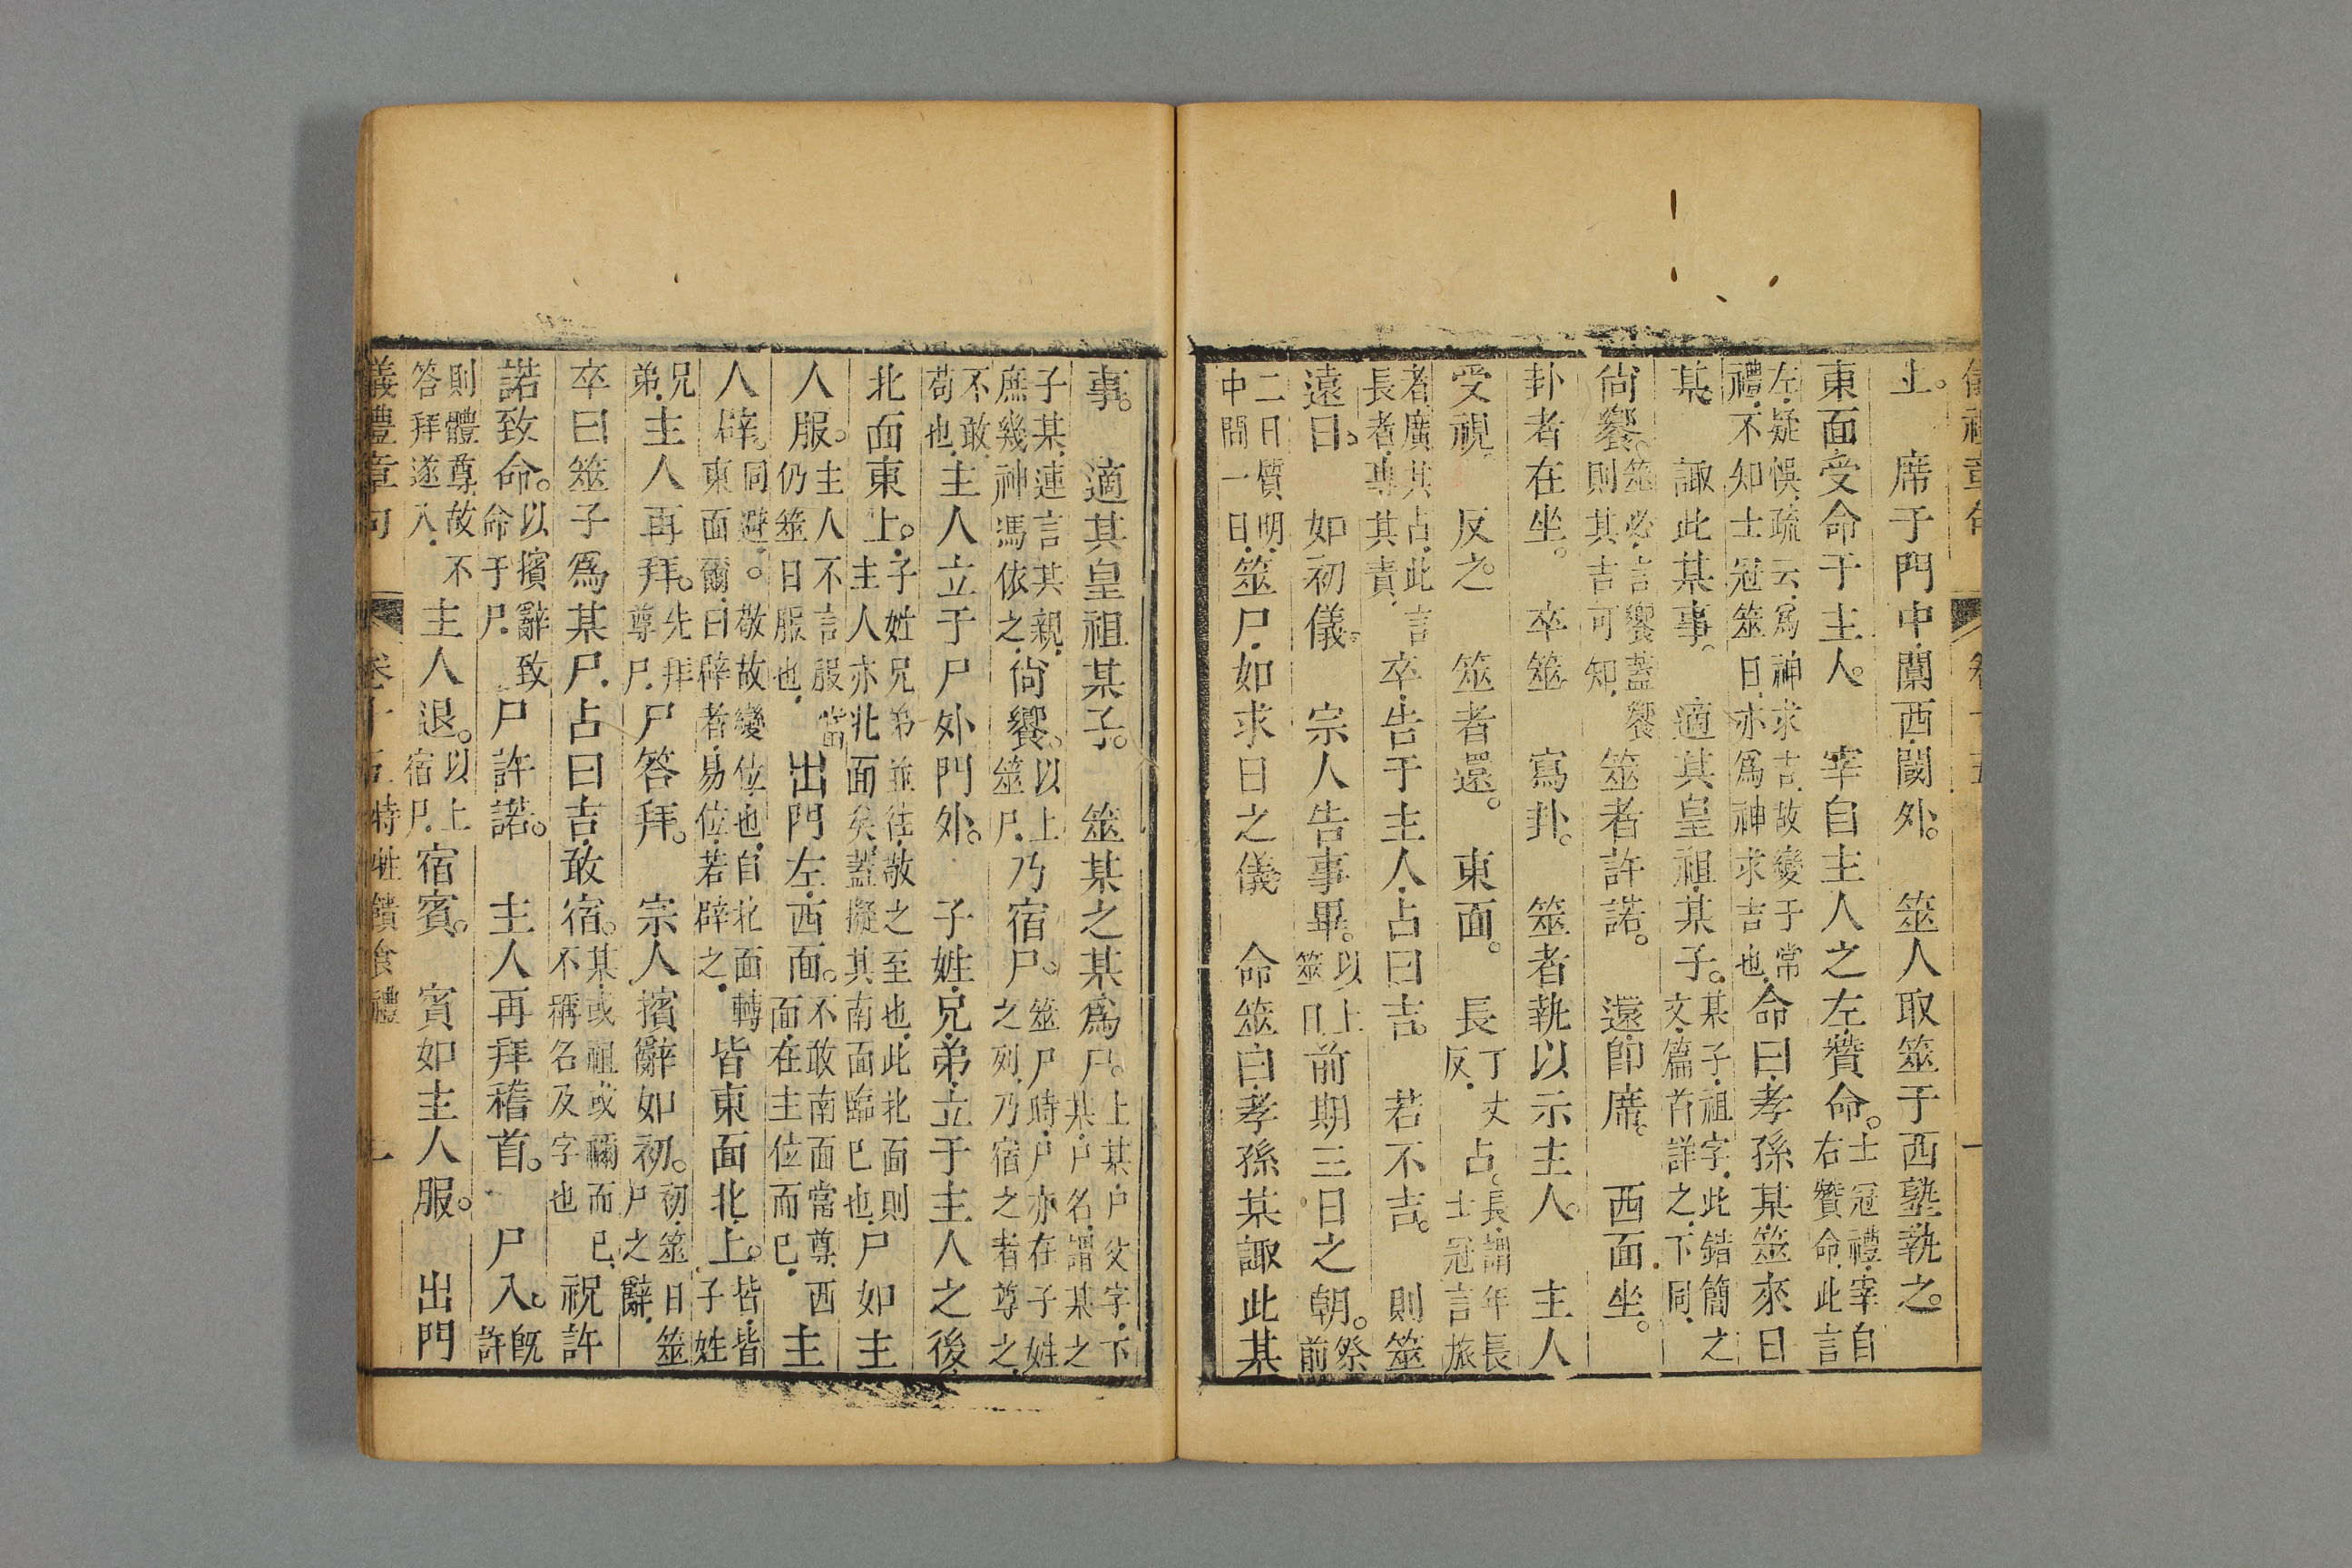 儀禮章句 卷十五 一
上。席于門中、闑西、閾外。筮人取筮于西塾、執之。
東面受命于主人。宰自主人之左、贊命。士冠禮、宰自右贊命、此言
左、疑悞、疏云、爲神求吉、故變于常禮、不知士冠筮日、亦爲神求吉也、命曰、孝孫某、筮來日
某。諏此某事。適其皇祖某子。某子、祖字、此錯簡之文、篇首詳之、下同、
尙饗。筮必言饗、蓋饗則其吉可知、筮者許諾。還、卽席。西面坐。
卦者在坐。卒筮寫卦。筮者執以示主人。主人
受視反之。筮者還。東面。長丁丈反、占。長、謂年長士冠言旅
者、廣其占、此言長者、專其責、卒、告于主人、占曰吉。若不吉。則筮
遠日。如初儀。宗人告事畢。以上筮日前期三日之朝。祭前
二日質明、中間一日、筮尸、如求日之儀 命筮曰、孝孫某諏此某
事。適其皇祖某子。筮某之某、爲尸。上某、尸父字、下某、尸名、謂某之
子某、連言其親、庶幾神馮依之、尙饗。以上筮尸、乃宿尸。筮尸時、尸亦在子姓之列、乃宿之者尊之、
不敢苟也、主人立于尸外門外。子姓、兄弟、立于主人之後、
北面東上。子姓兄弟並往、敬之至也、此北面則主人亦北面矣、蓋擬其南面臨己也、尸如主
人服。主人不言服、當仍筮日服也、出門左、西面。不敢南面當尊、西面、在主位而已、主
人辟。同避。○敬故變位也、自北面轉東面爾、曰辟者、易位、若辟之、皆東面北上。皆、皆子姓
兄弟、主人再拜。先拜尊尸、尸答拜。宗人擯辭如初。初、筮日筮尸之辭、
卒曰筮子爲某尸、占曰吉、敢宿。某、或祖或禰而已、不稱名及字也 祝許
諾致命。以擯辭致命于尸、尸許諾。主人再拜稽首。尸入。旣許
則體尊、故不答拜遂入、主人退。以上宿尸、宿賓。賓如主人服。出門
儀禮章句 卷十五 特牲饋食禮 二